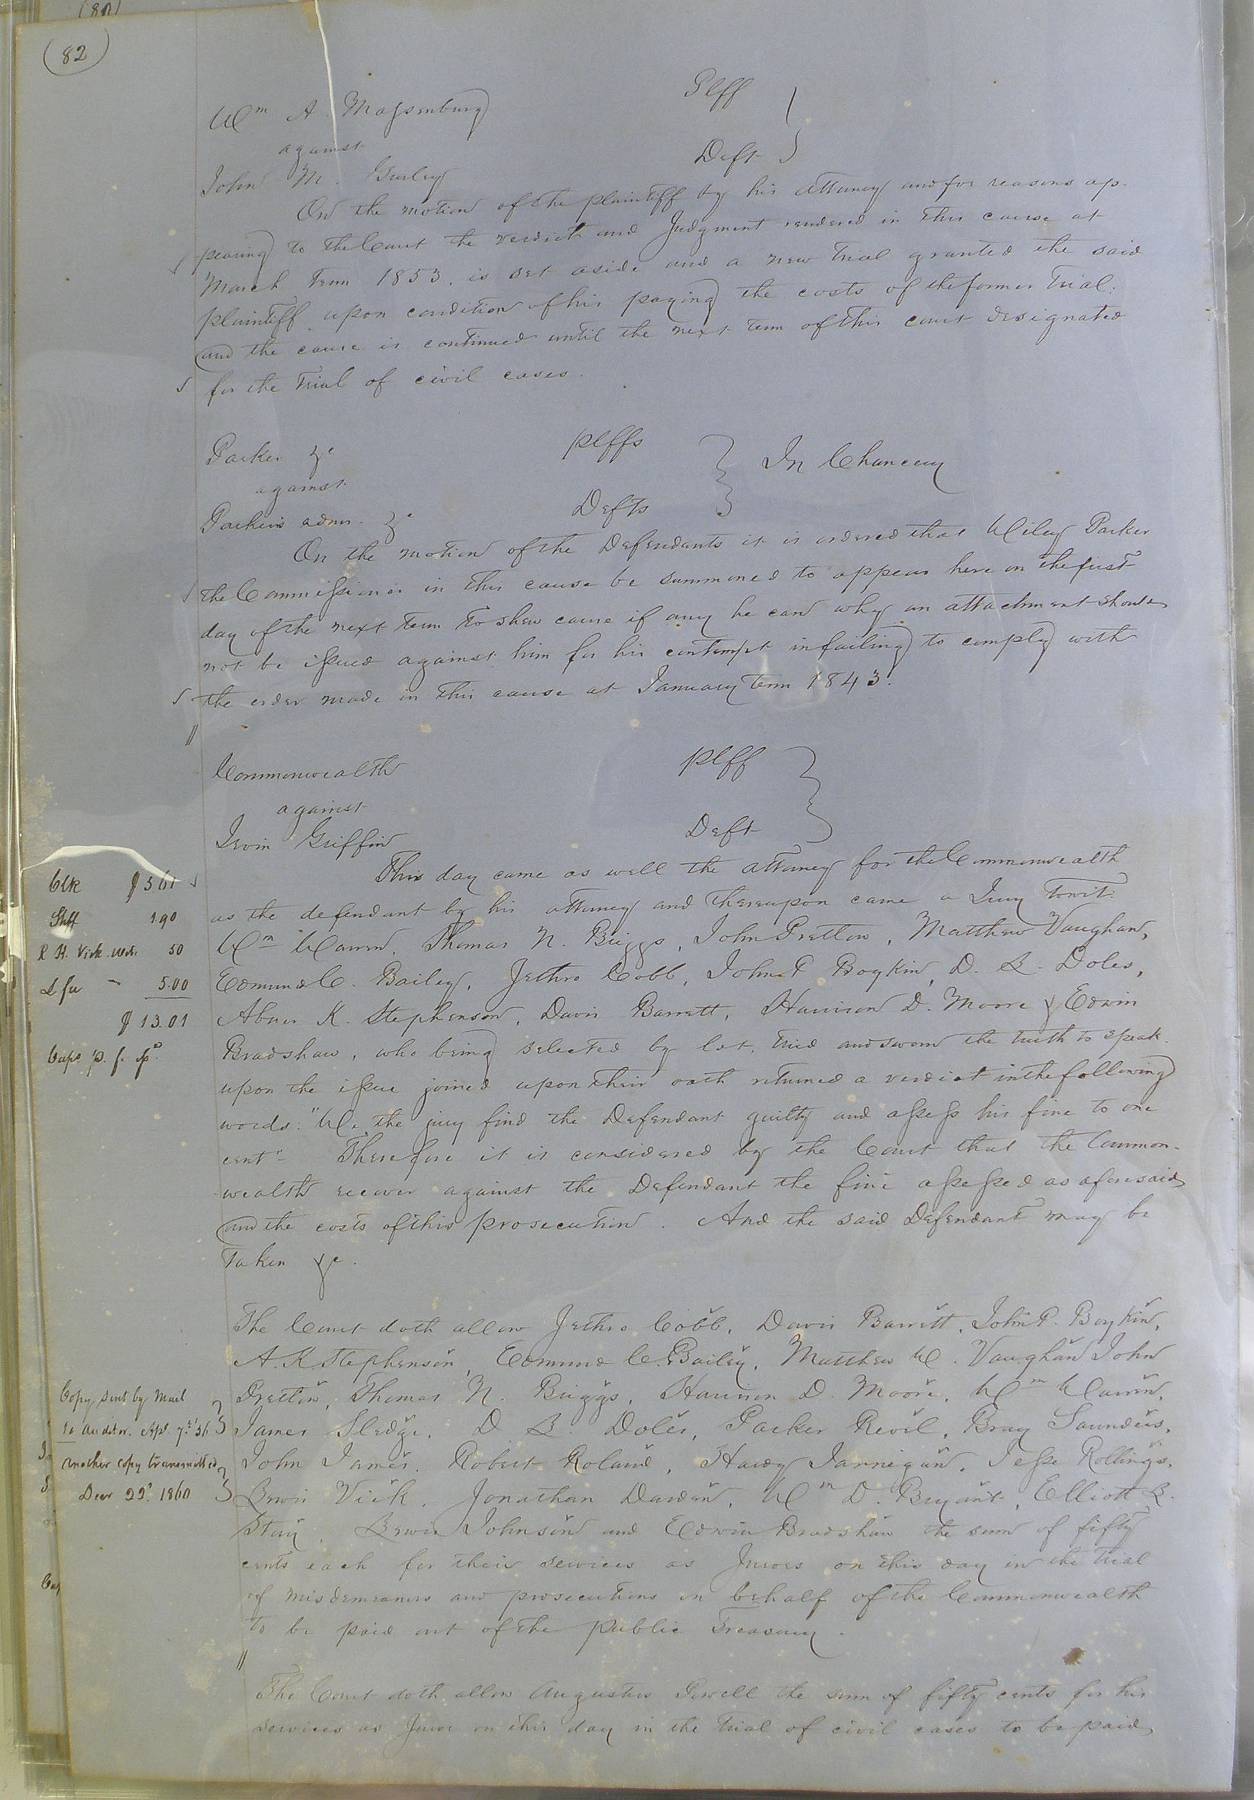 (82)
Wm A. Massenburg Plff
against
John M. Gurley Deft
On the motion of the plaintiff by his attorney and for reasons ap-
pearing to the Court the verdict and Judgment rendered in this cause at
March Term 1853. is set aside and a new trial granted the said
plaintiff upon condition of his paying the costs of the former trial.
and the cause is continued until the next term of this court designated
for the trial of civil cases.
Parker &c plffs
against In Chancery
Parker's admr. &c Defts
On the motion of the Defendants it is ordered that Wiley Parker
the Commissioner in this cause be summoned to appear here on the first
day of the next term to shew cause if any he can why an attachment should
not be issued against him for his contempt in failing to comply with
the order made in this cause at January term 1843.
Commonwealth plff
against
Irvin Griffin Deft
This day came as well the attorney for the Commonwealth
as the defendant by his attorney and thereupon came a Jury towit:
Wm Warren, Thomas N. Briggs, John Pretlow, Matthew Vaughan,
Edmund C. Bailey, Jethro Cobb, John P. Boykin, D. B. Doles,
Abner K. Stephenson, Davis Barrett, Harrison D. Moore & Edwin
Bradshaw, who being selected by lot, tried and sworn the truth to speak
upon the issue joined upon their oath returned a verdict in the following
words: "We the jury find the Defendant guilty and assess his fine to one
cent" Therefore it is considered by the Court that the Common-
wealth recover against the Defendant the fine assessed as aforesaid
and the costs of this prosecution. And the said Defendant may be
taken &c.
Clk $5.61
Shff 1.90
R. H. Vick 50
5.00
$13.01
The Court doth allow Jethro Cobb, Davis Barrett, John P. Boykin,
A. K. Stephenson, Edmund C. Bailey, Matthew W. Vaughan John
Pretlow, Thomas N. Briggs, Harrison D. Moore, Wm Warren,
James Sledge, D. B. Doles, Parker Revil, Bray Saunders,
John James, Robert Roland, Hardy Jarnegan, Jesse Rollings,
Erwin Vick, Jonathan Darden, Wm D. Bryant, Elliott B.
Erwin Johnson and Edwin Bradshaw the sum of fifty
cents each for their services as Jurors on this day in the trial
of misdemeanors and prosecutions in behalf of the Commonwealth
to be paid out of the public Treasury.
Copy sent by Mail
to auditor. Apl. 7th 56
another copy transmitted
Decr 22d 1860
The Court doth allow Augustus Sewell the sum of fifty cents for his
services as Juror on this day in the trial of civil cases to be paid